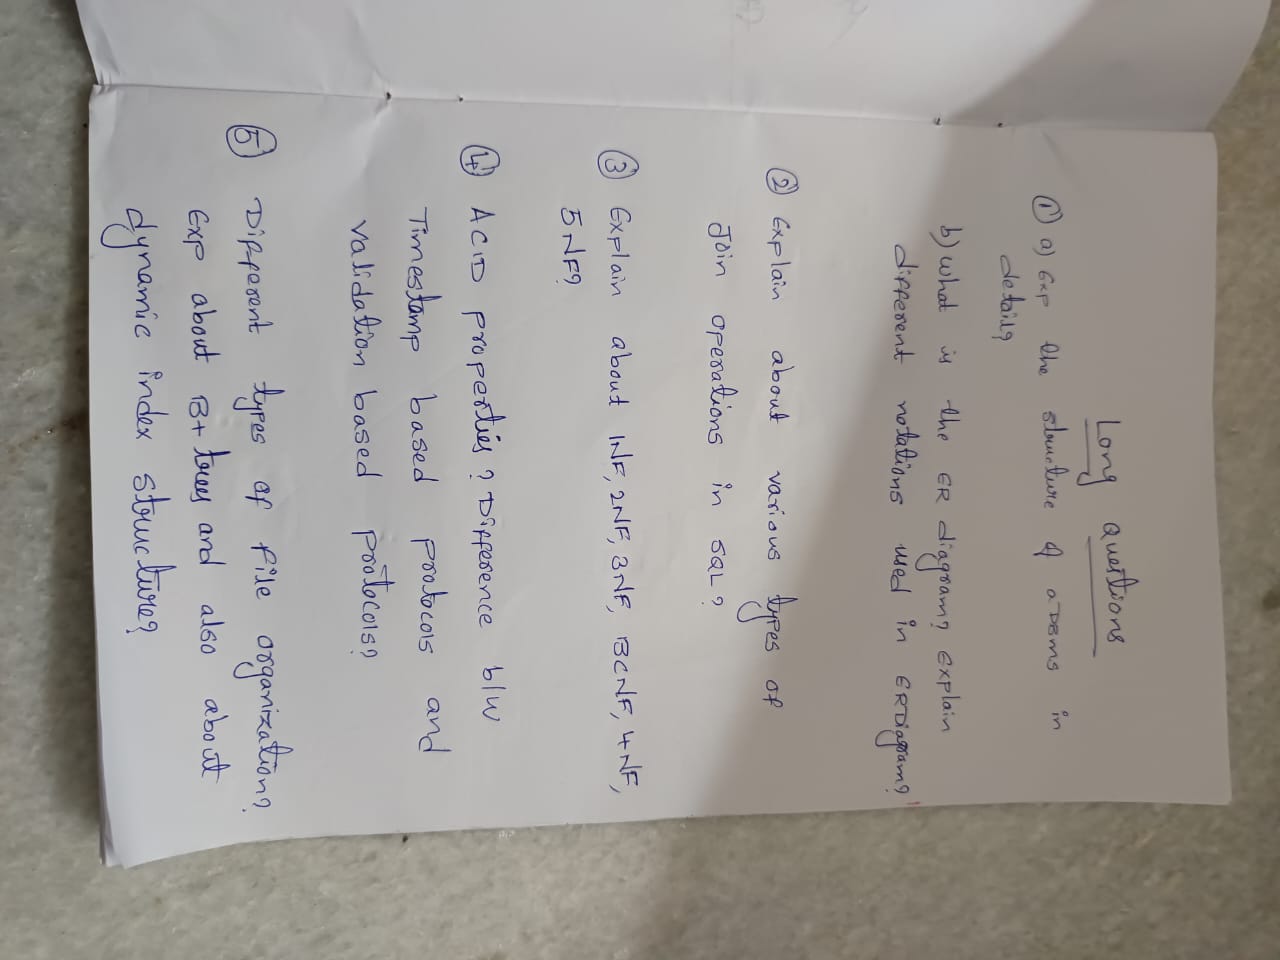 Long Questions
① a) Exp the structure of a DBMS in
detail?
b) What is the ER diagram? Explain
different notations used in ER Diagram?
② Explain about various types of
Join operations in SQL?
③ Explain about 1NF, 2NF, 3NF, BCNF, 4NF,
5NF?
④ ACID properties? Difference b/w
Timestamp based protocols and
validation based protocols?
⑤ Different types of file organization?
Exp about B+ trees and also about
dynamic index structure?